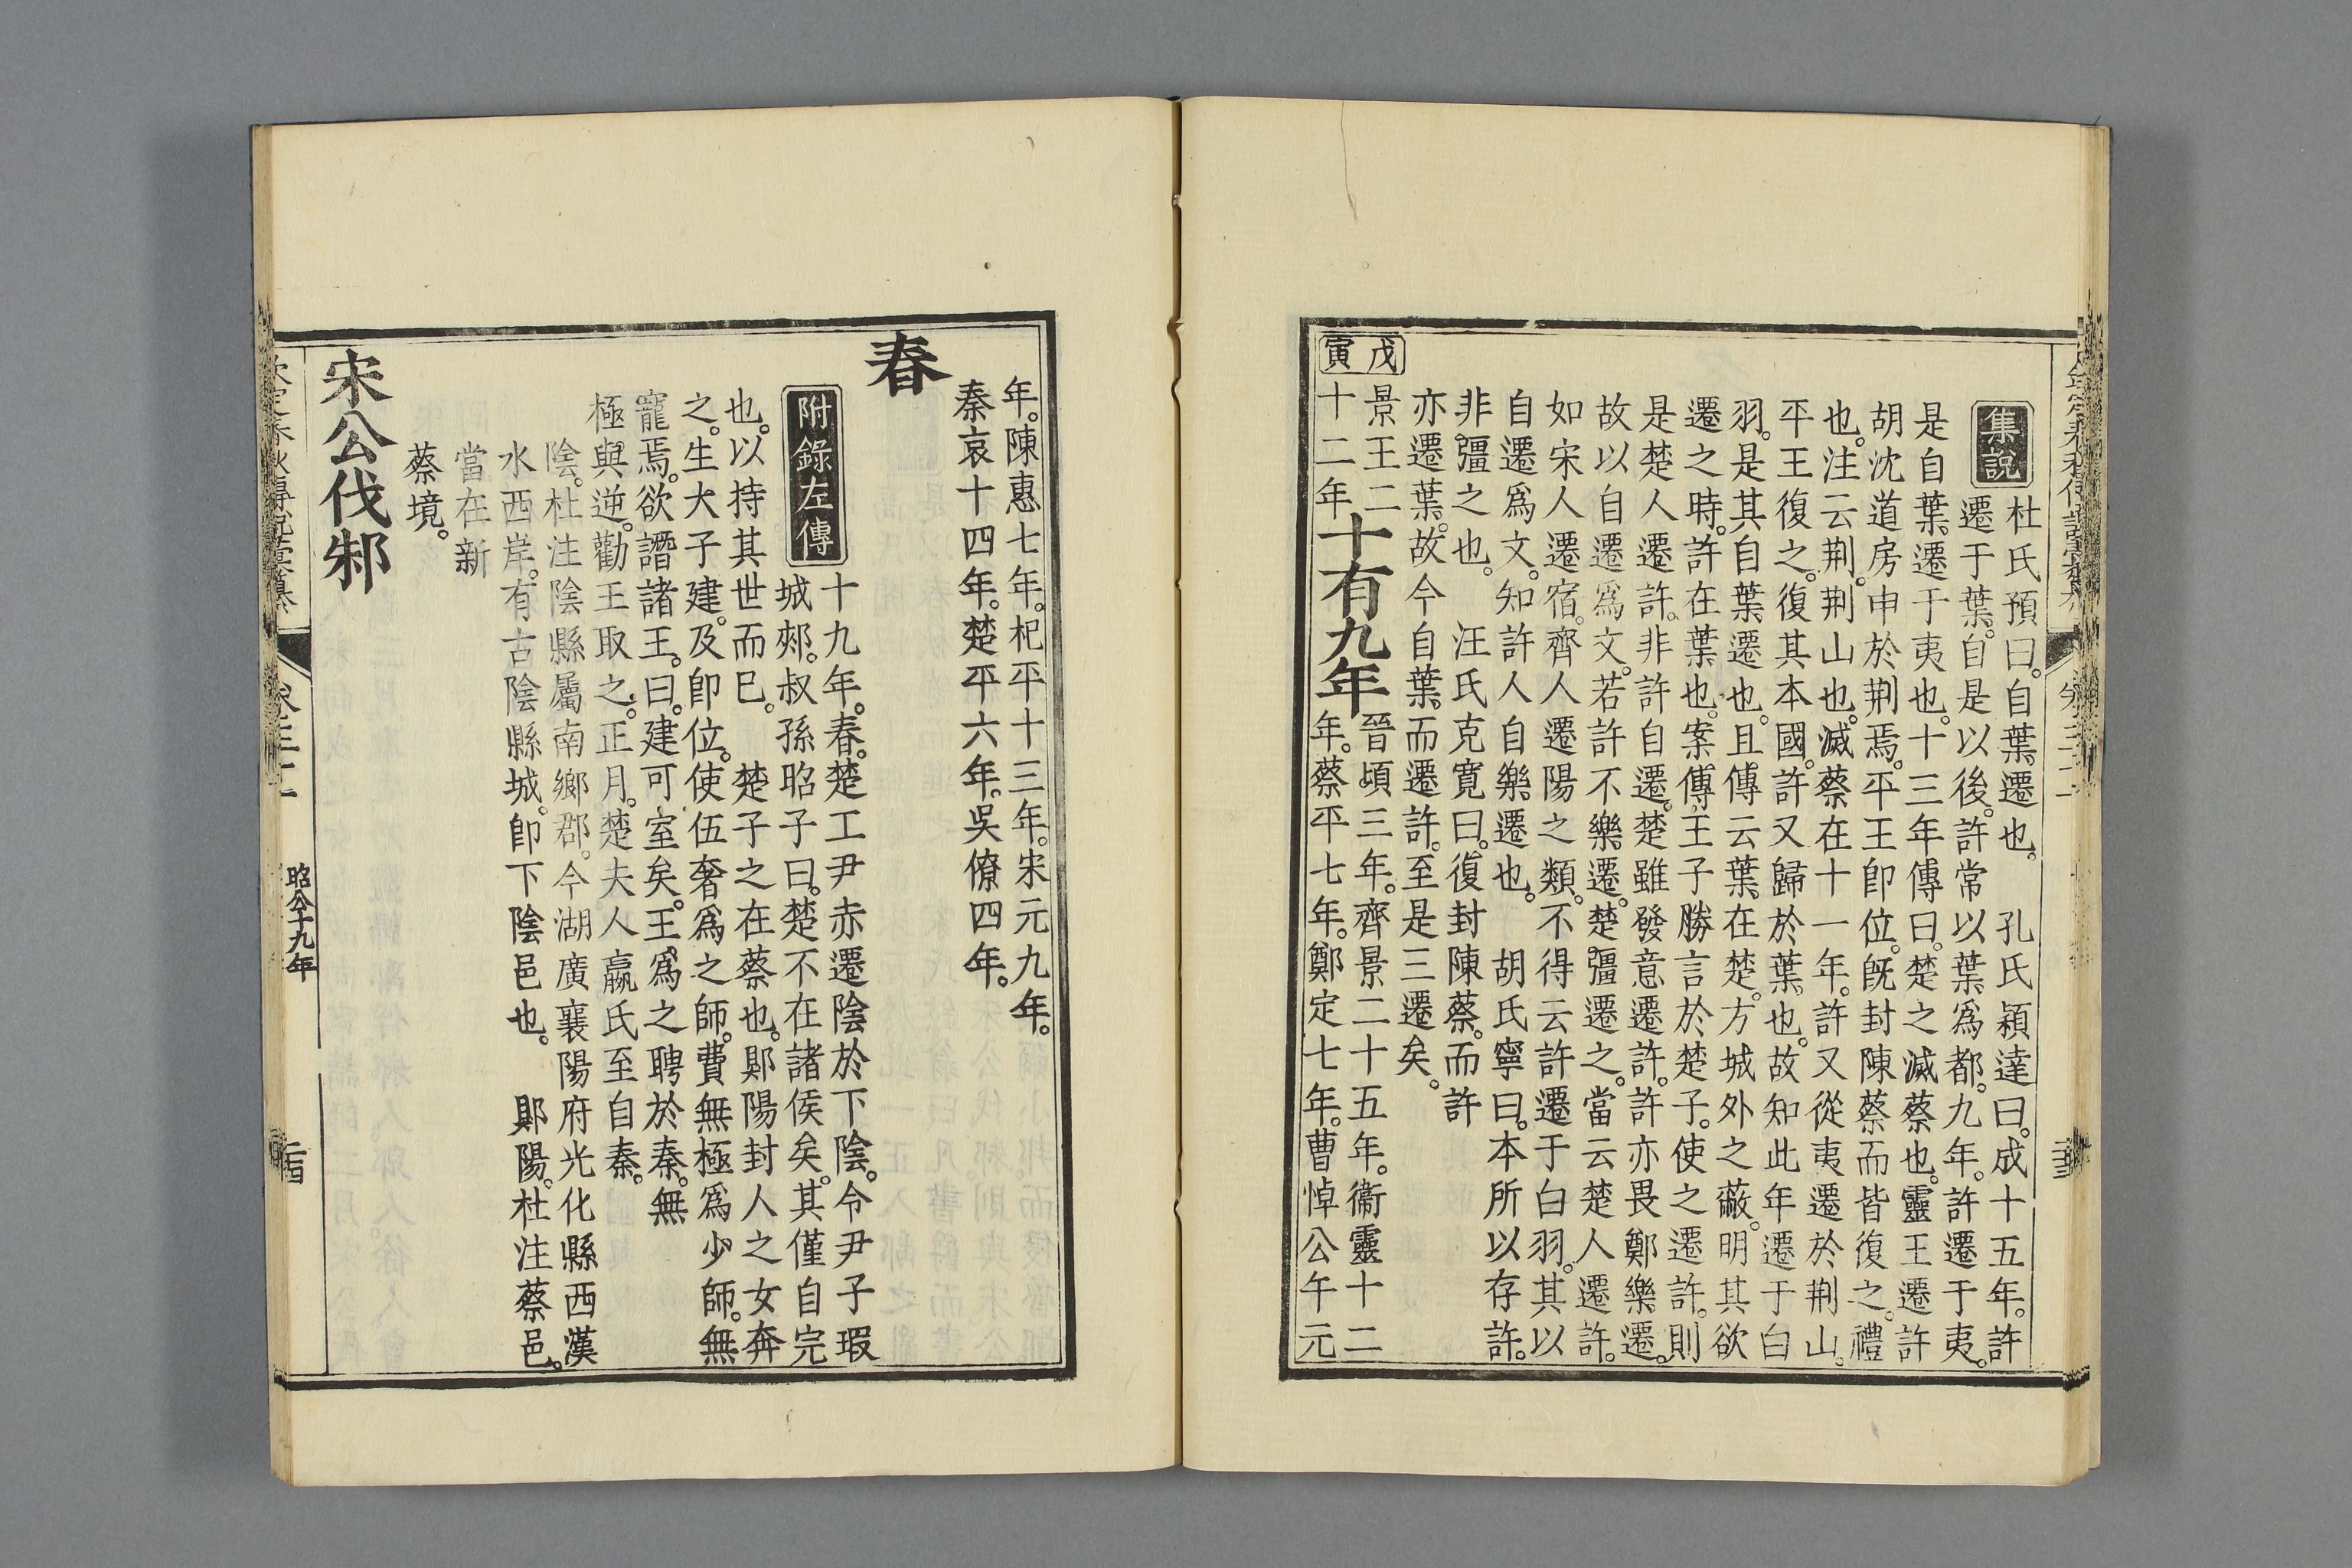 集說
杜氏預曰。自葉遷也。　孔氏穎達曰。成十五年。許
遷于葉。自是以後。許常以葉爲都。九年。許遷于夷。
是自葉遷于夷也。十三年傳曰。楚之滅蔡也。靈王遷許
胡沈道房申於荆焉。平王卽位。旣封陳蔡而皆復之。禮
也。注云荆。荆山也。滅蔡在十一年。許又從夷遷於荆山。
平王復之。復其本國。許又歸於葉也。故知此年遷于白
羽。是其自葉遷也。且傳云葉在楚。方城外之蔽。明其欲
遷之時。許在葉也。案傳。王子勝言於楚子。使之遷許。則
是楚人遷許。非許自遷。楚雖發意遷許。許亦畏鄭樂遷。
故以自遷爲文。若許不樂遷。楚彊遷之。當云楚人遷許。
如宋人遷宿。齊人遷陽之類。不得云許遷于白羽。其以
自遷爲文。知許人自樂遷也。　胡氏寧曰。本所以存許。
非彊之也。　汪氏克寬曰。復封陳蔡。而許
亦遷葉。故今自葉而遷許。至是三遷矣。
戊寅
景王二
十二年
十有九年
晉頃三年。齊景二十五年。衞靈十二
年。蔡平七年。鄭定七年。曹悼公午元
年。陳惠七年。杞平十三年。宋元九年。
秦哀十四年。楚平六年。吳僚四年。
春
附錄左傳
十九年。春。楚工尹赤遷陰於下陰。令尹子瑕
城郟。叔孫昭子曰。楚不在諸侯矣。其僅自完
也。以持其世而已。　楚子之在蔡也。郹陽封人之女奔
之。生大子建。及卽位。使伍奢爲之師。費無極爲少師。無
寵焉。欲譖諸王。曰。建可室矣。王爲之聘於秦。無
極與逆。勸王取之。正月。楚夫人嬴氏至自秦。
陰。杜注陰縣屬南鄉郡。今湖廣襄陽府光化縣西漢
水西岸。有古陰縣城。卽下陰邑也。　郹陽。杜注蔡邑。
當在新
蔡境。
宋公伐邾
昭公十九年